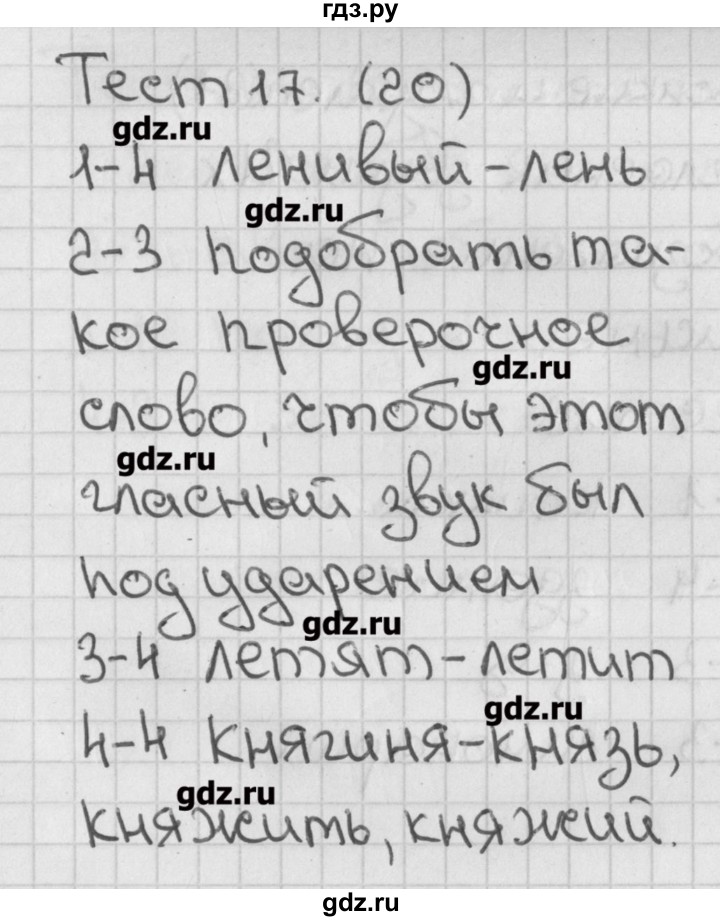 гдз.ру
Тест 17. (20)
gdz.ru
1-4 ленивый - лень
gdz.ru
2-3 подобрать та-
кое проверочное
gdz.ru
слово, чтобы этот
gdz.ru
гласный звук был
под ударением
gdz.ru
3-4 летят - летит
gdz.ru
4-4 княгиня - князь,
gdz.ru
княжить, княжий.
gdz.ru